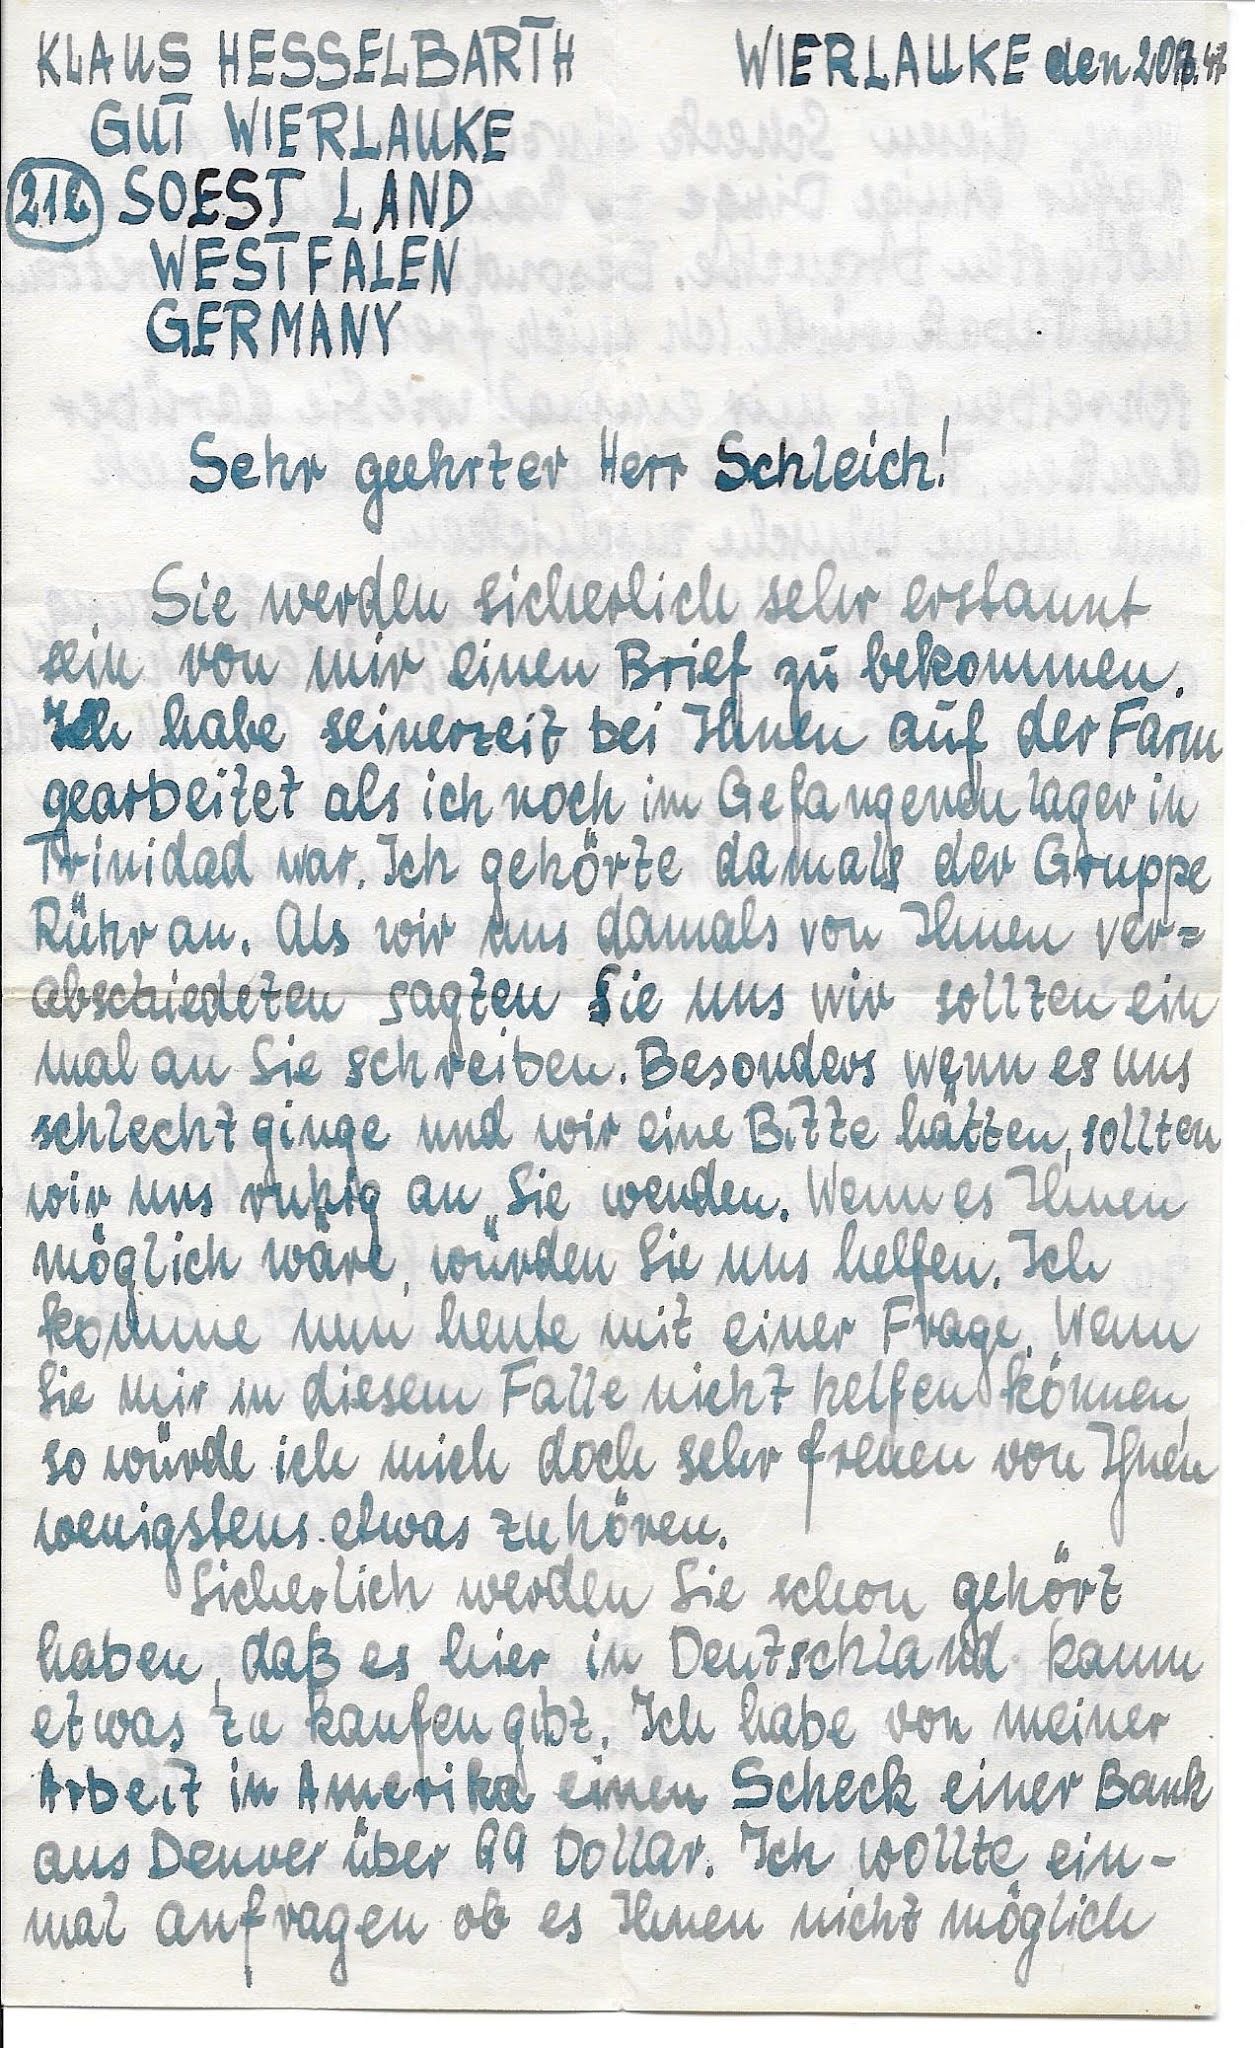 KLAUS HESSELBARTH WIERLAUKE den
GUT WIERLAUKE
SOEST LAND
WESTFALEN
GERMANY
Sehr geehrter Herr Schleich!
Sie werden sicherlich sehr erstaunt
sein von mir einen Brief zu bekommen.
Ich habe seinerzeit bei Ihnen auf der Farm
gearbeitet als ich noch im Gefangenenlager in
Trinidad war. Ich gehörte damals der Gruppe
Rühr an. Als wir uns damals von Ihnen ver=
abschiedeten sagten Sie uns wir sollten ein
mal an Sie schreiben. Besonders wenn es uns
schlecht ginge und wir eine Bitte hätten, sollten
wir uns ruhig an Sie wenden. Wenn es Ihnen
möglich wäre, würden Sie uns helfen. Ich
komme nun heute mit einer Frage. Wenn
Sie mir in diesem Falle nicht helfen können,
so würde ich mich doch sehr freuen von Ihnen
wenigstens etwas zu hören.
Sicherlich werden Sie schon gehört
haben, daß es hier in Deutschland kaum
etwas zu kaufen gibt. Ich habe von meiner
Arbeit in Amerika einen Scheck einer Bank
aus Denver über 99 Dollar. Ich wollte ein-
mal anfragen ob es Ihnen nicht möglich